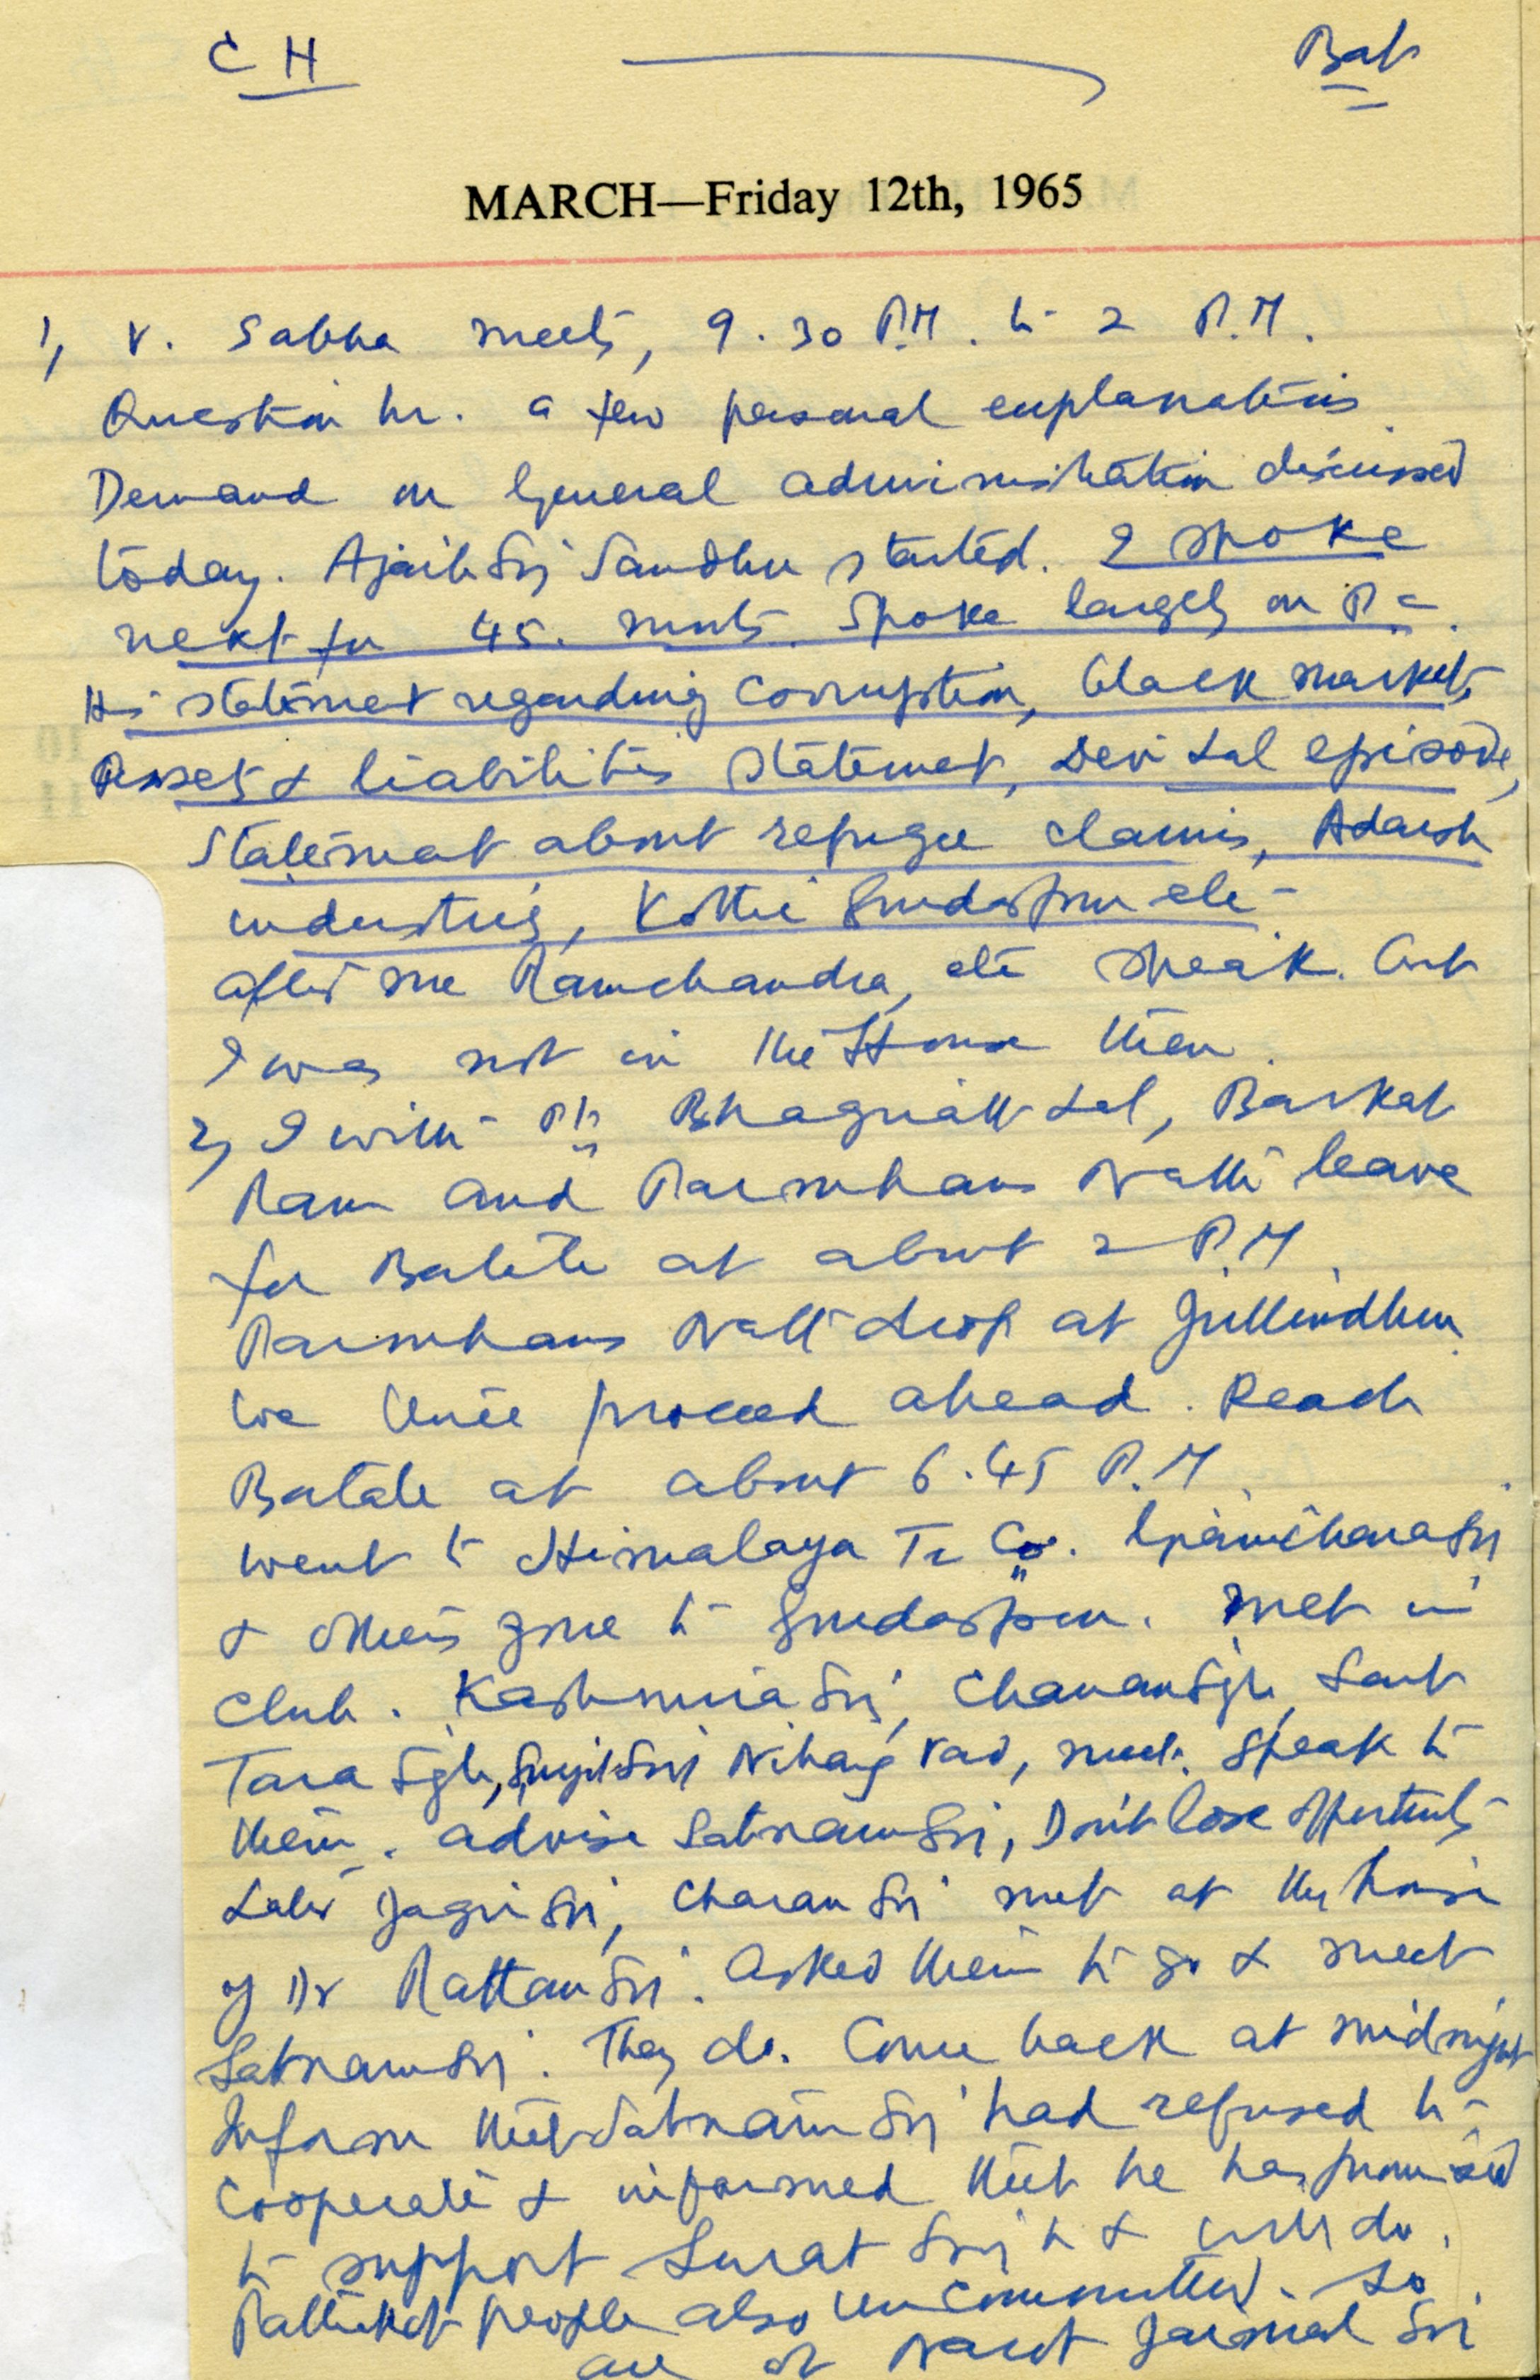 C H Bat
MARCH—Friday 12th, 1965
1, V. Sabha meets, 9.30 P.M. to 2 P.M.
Question hr. a few personal explanations
Demand on General administration discussed
today. Ajaib Sij Sandhu started. I spoke
next for 45. mnts. Spoke largely on
statement regarding corruption, black markets
Assets & liabilities statement, Devi Lal episode,
statement about refugee claims, Adarsh
industries, Kothi Gurdaspur etc
after me Ramchandra, etc speak. But
I was not in the House then.
2, I with Bhagirath Lal, Barkat
Ram and Parmhans Nath leave
for Batala at about 2 P.M.
Parmhans Nath drop at Jullundhur.
We three proceed ahead. Reach
Batala at about 6.45 P.M.
Went to Himalaya Tr Co. Sij
& others gone to Gurdaspur. Met in
Club. Kashmira Sij, Chanan Sgh, Sant
Tara Sgh, Surjit Sij Nihang, meet. Speak to
them. advise Satnam Sij, Don't lose opportunity
Later Jagir Sij, Charan Sij met at the house
of Dr Rattan Sij. Asked them to go & meet
Satnam Sij. They do. Come back at midnight
Inform that Satnam Sij had refused to
cooperate & informed that he has promised
to support Surat Sij & will do.
Pathankot people also uncommitted. So
are of Jaimal Sij